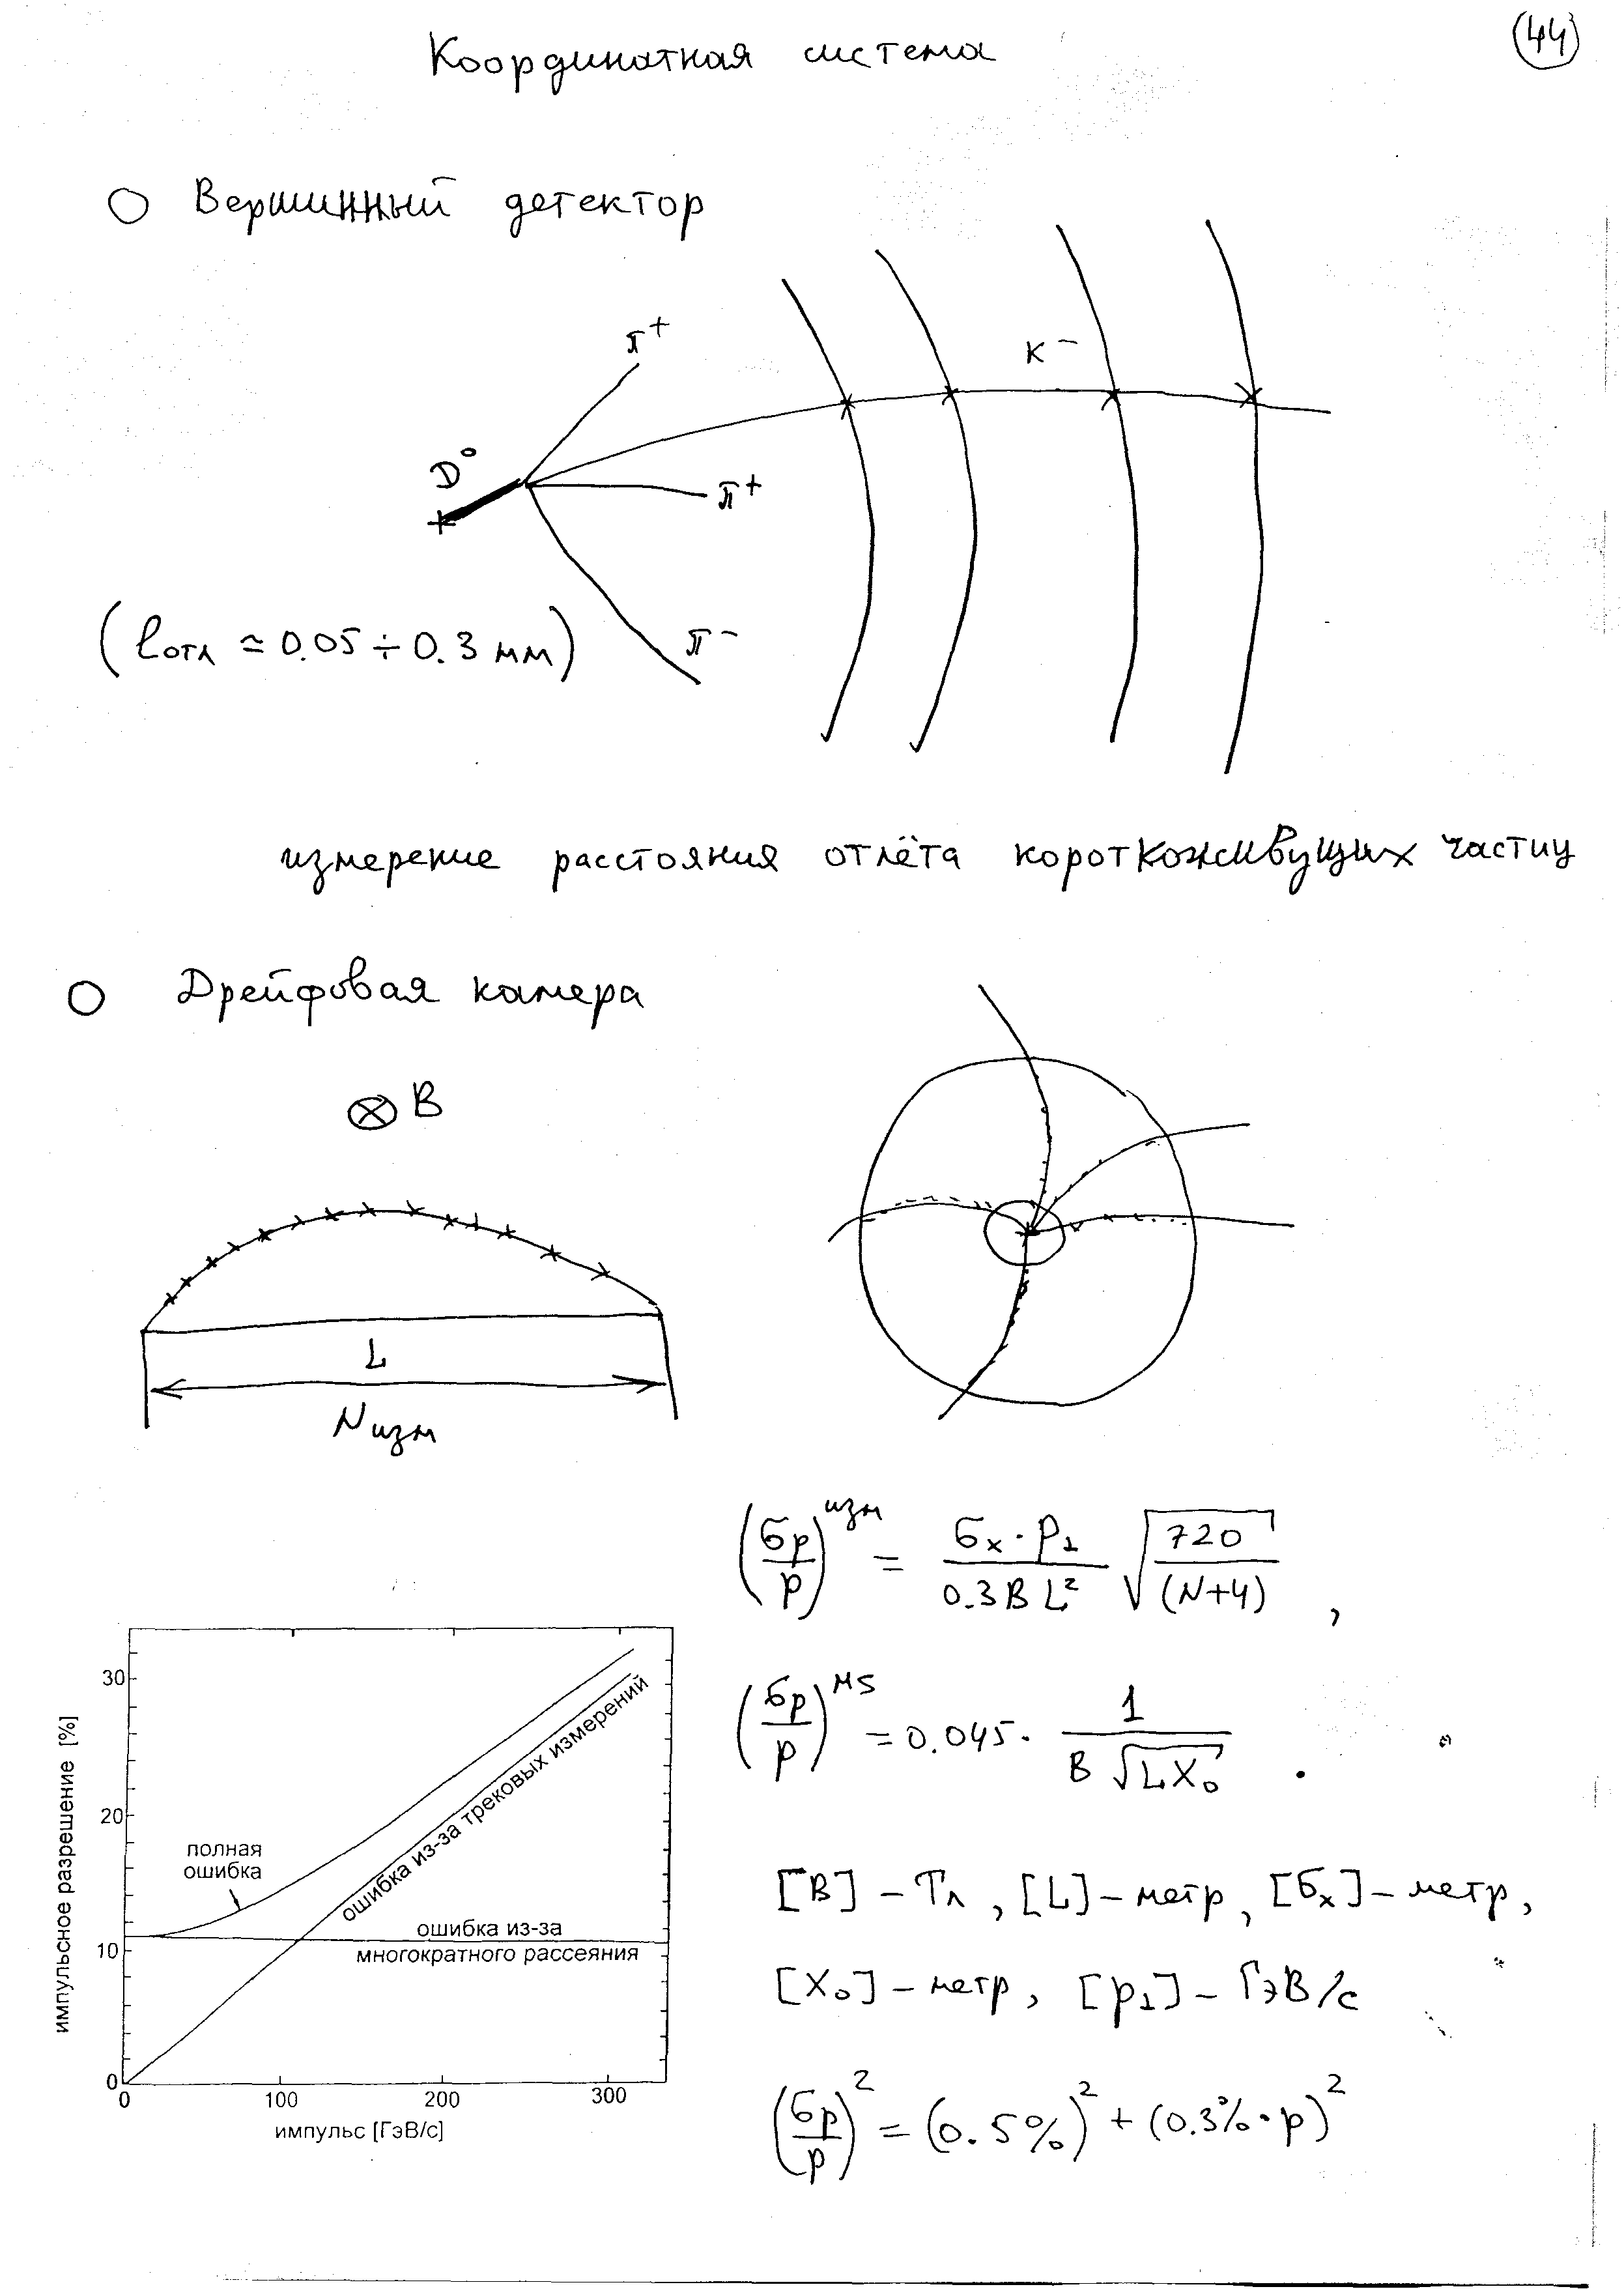 Координатная система
44
Вершинный детектор
π⁺
K⁻
D⁰
π⁺
π⁻
(ℓотл ≃ 0.05 ÷ 0.3 мм)
измерение расстояния отлёта короткоживущих частиц
Дрейфовая камера
⊗ B
L
Nизм
(σp/p)^изм = σx · p⊥ / 0.3 B L² √(720/(N+4)) ,
(σp/p)^MS = 0.045 · 1 / B √(L X₀) .
[B] – Тл, [L] – метр, [σx] – метр,
[X₀] – метр, [p⊥] – ГэВ/с
(σp/p)² = (0.5%)² + (0.3% · p)²
импульсное разрешение [%]
30
20
10
0
полная
ошибка
ошибка из-за трековых измерений
ошибка из-за
многократного рассеяния
0 100 200 300
импульс [ГэВ/с]